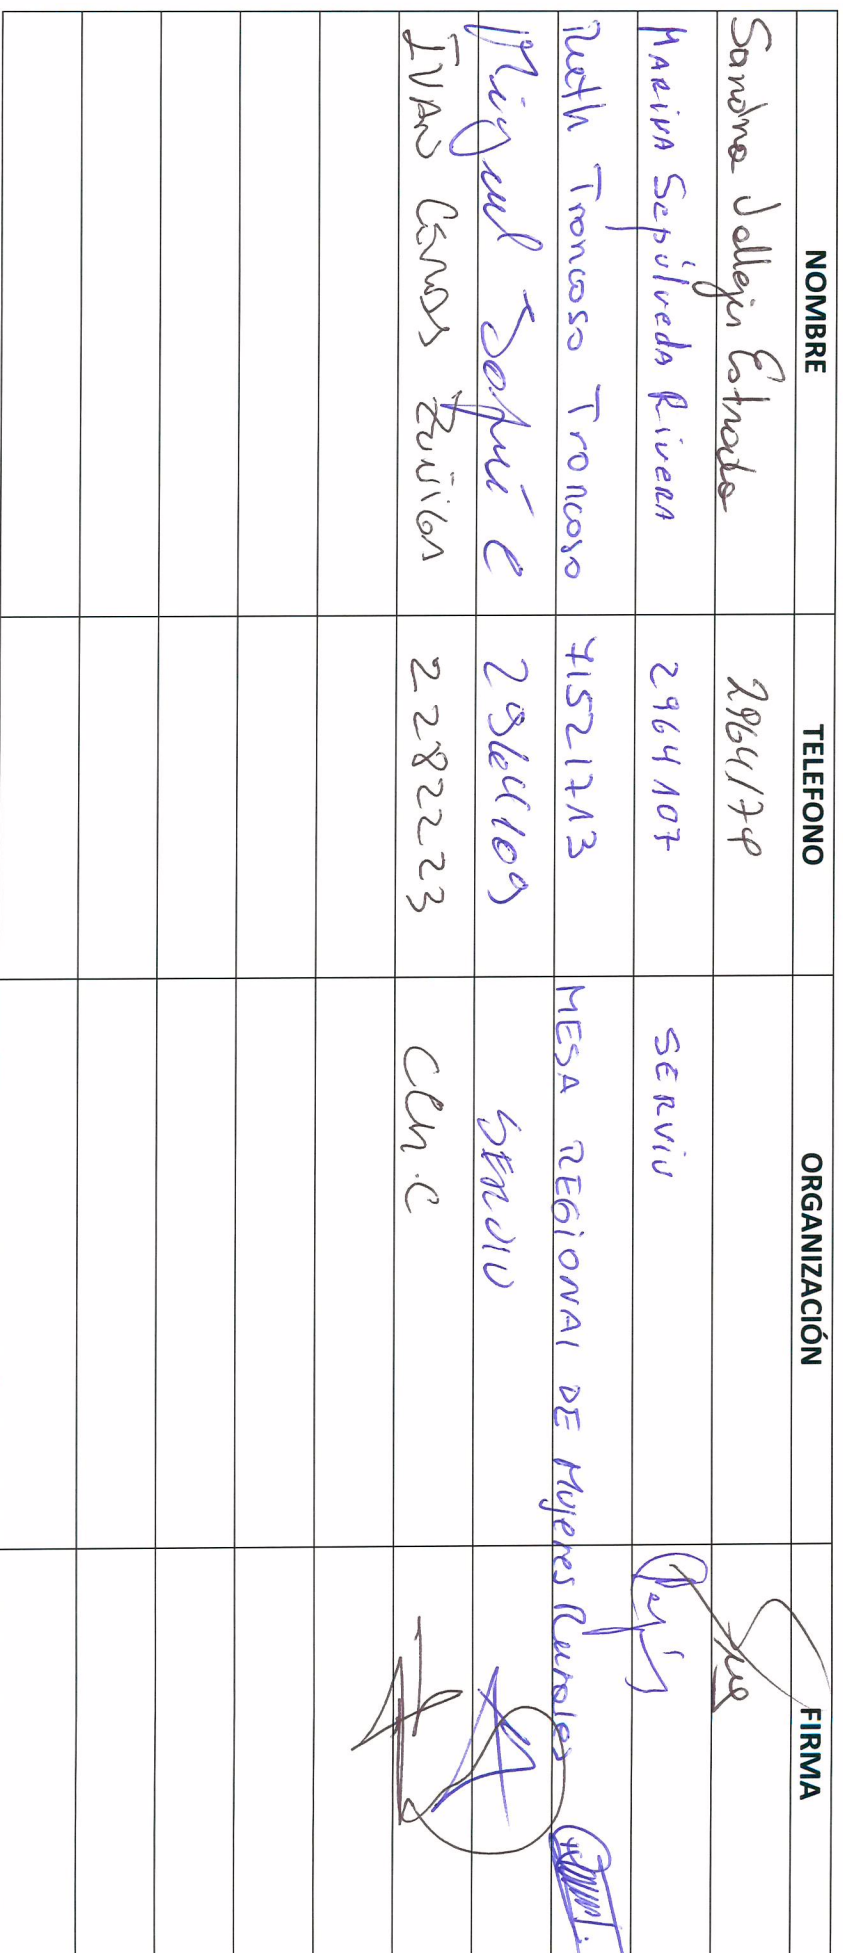 NOMBRE TELEFONO ORGANIZACIÓN FIRMA
Sandra Vallejos Estrada 2964174
MARINA Sepúlveda RIVERA 2964107 SERVIU
Ruth Troncoso Troncoso 71521713 MESA REGIONAl DE Mujeres Rurales
Miguel 2964109 SERVIU
IVAN CANALES ZUÑIGA 2282223